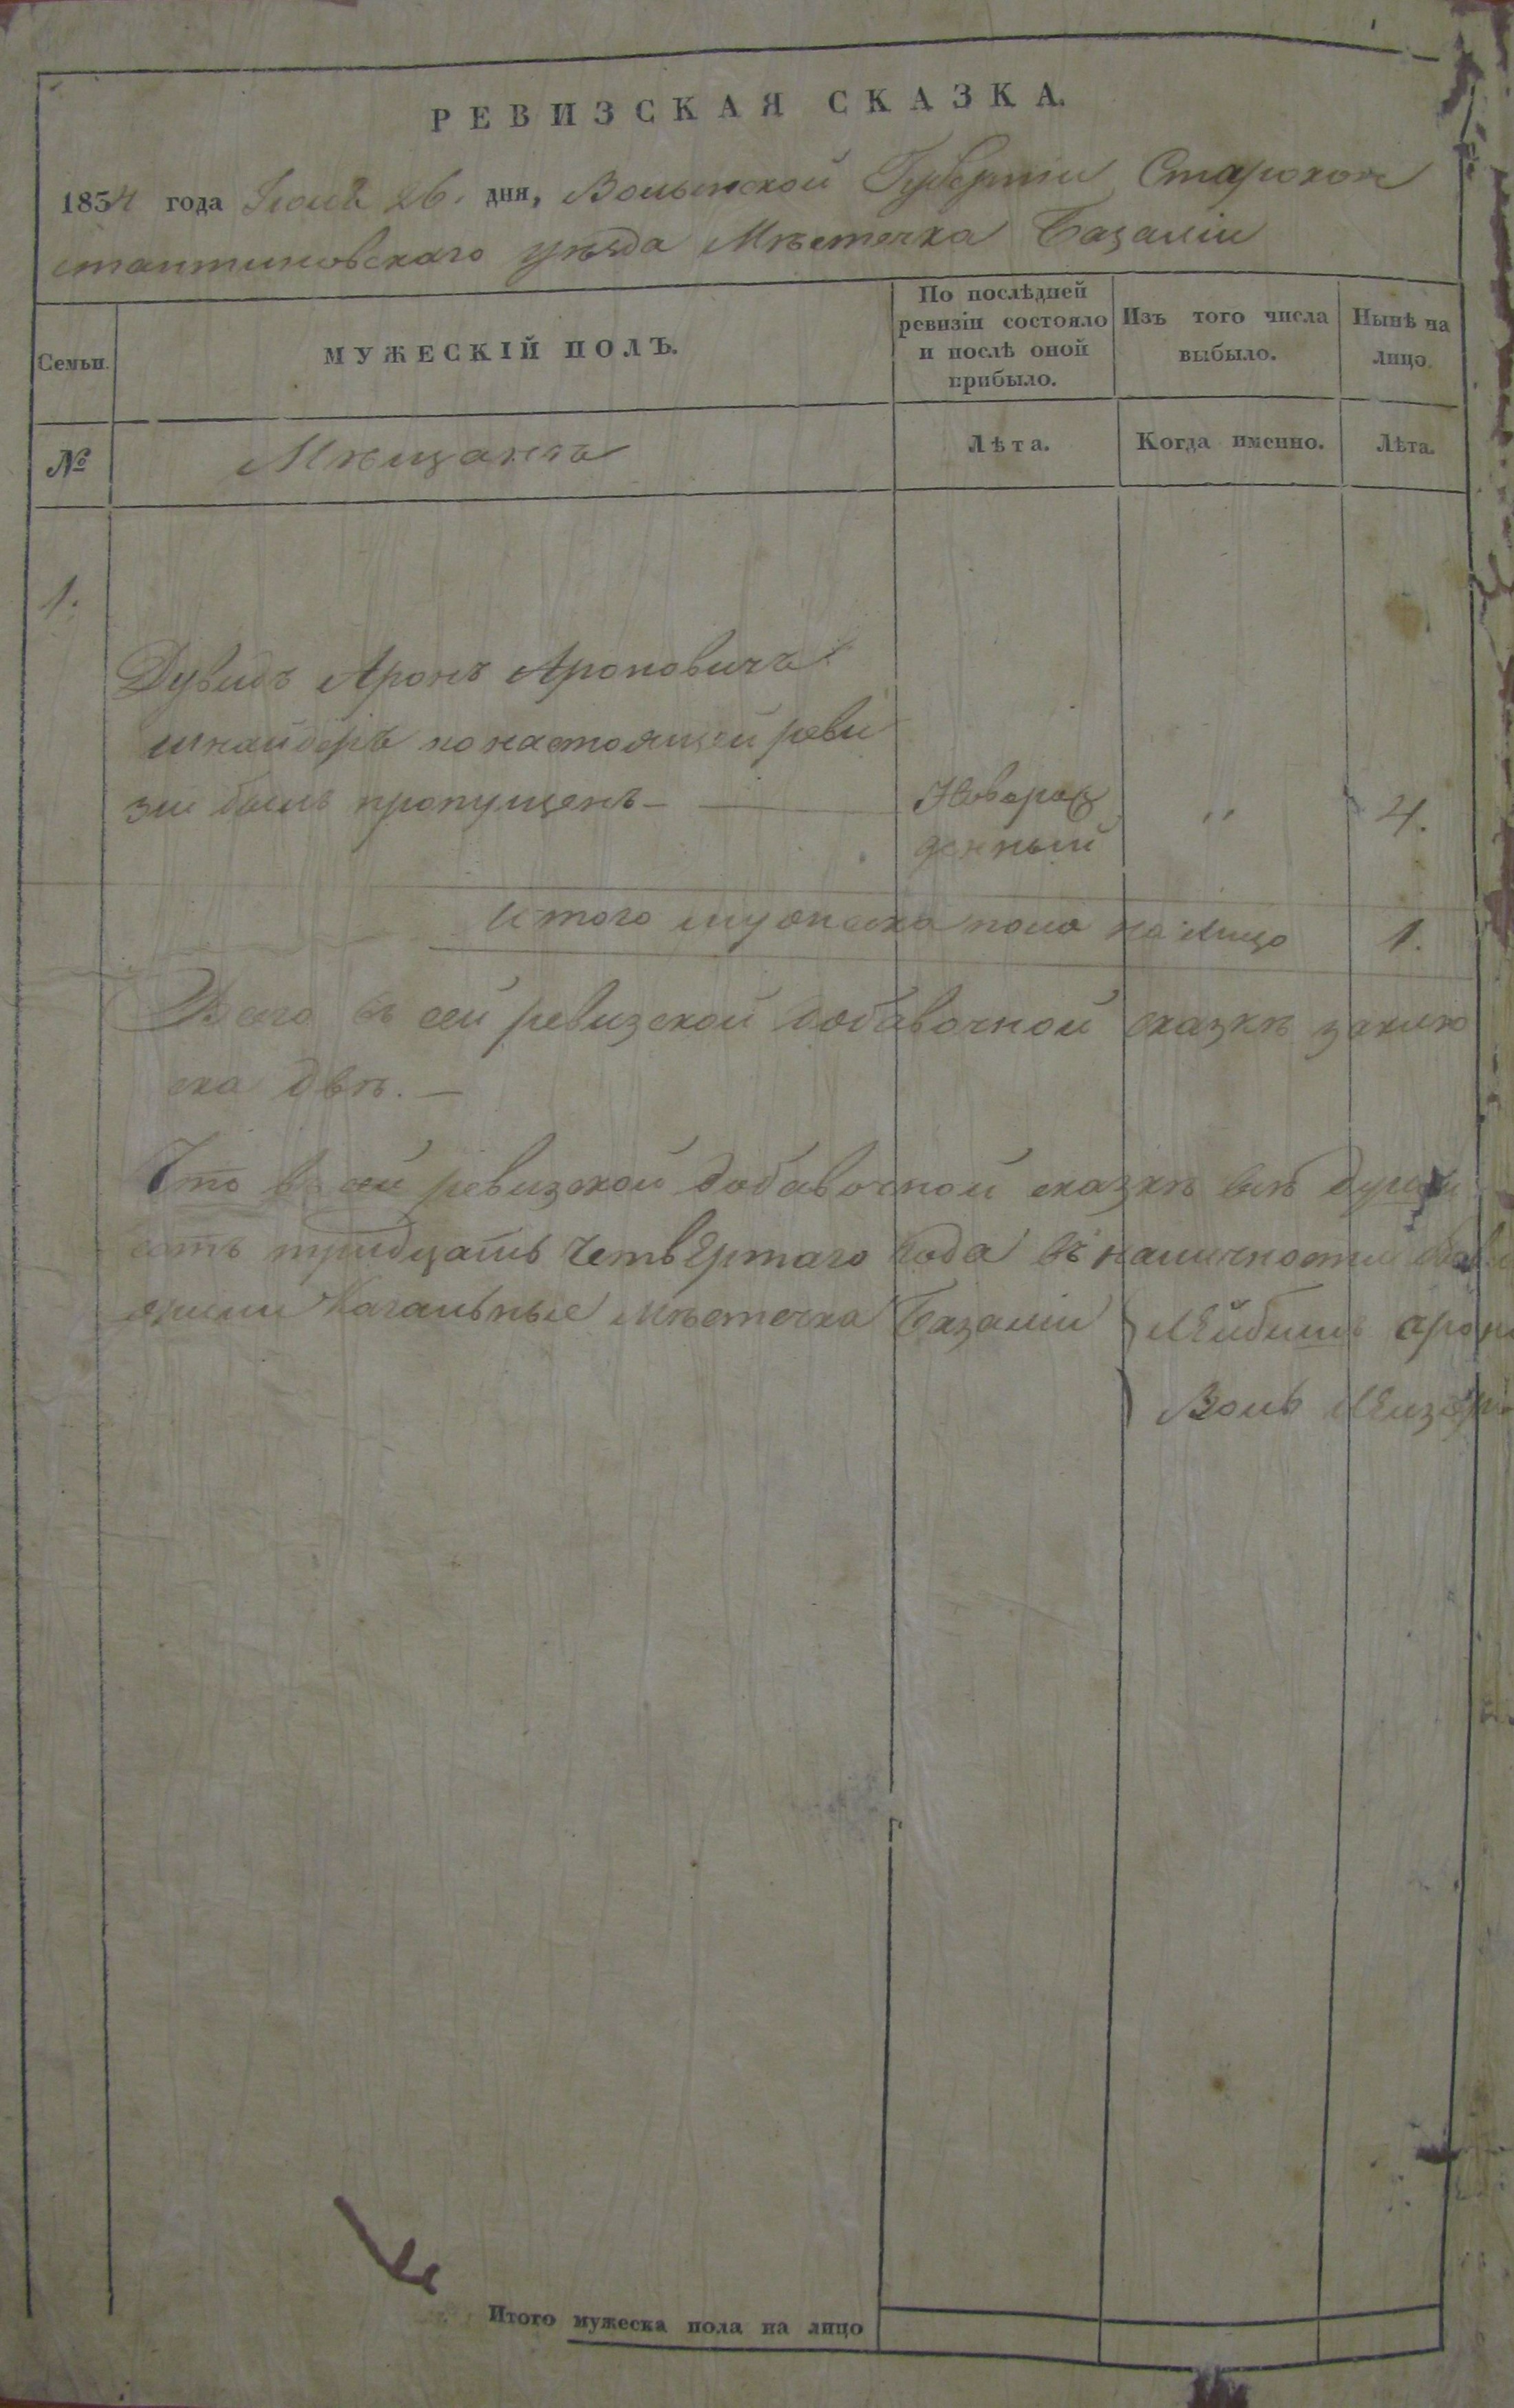 РЕВИЗСКАЯ СКАЗКА.
1854 года Іюля 26. дня, Волынской Губерніи Старокон
стантиновскаго уѣзда Мѣстечка Базаліи
Семьи.
МУЖЕСКІЙ ПОЛЪ.
По послѣдней
ревизіи состояло
и послѣ оной
прибыло.
Изъ того числа
выбыло.
Нынѣ на
лицо.
№
Мѣщанъ
Лѣта.
Когда именно.
Лѣта.
1.
Дувидъ Аронъ Ароновичъ
шнайдеръ по настоящей реви
зіи былъ пропущенъ —
Новорож
денный
"
4.
Итого мужеска пола на лицо
1.
Всего въ сей ревизской добавочной сказкѣ заклю
ска двѣ. —
Что въ сей ревизской добавочной сказкѣ всѣ души
сятъ четвертаго года въ наличности
Кагальные мѣстечка Базаліи
Лейбишъ Арон
Воль
Итого мужеска пола на лицо